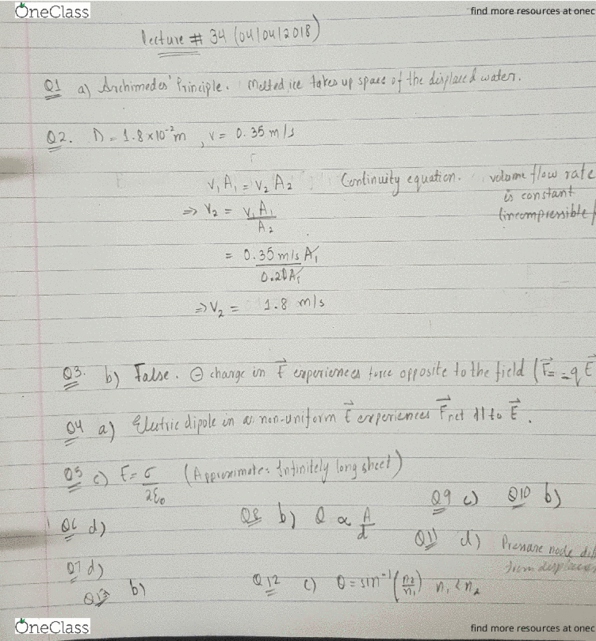 OneClass
find more resources at onec
Lecture # 34 (04/04/2018)
Q1 a) Archimedes' Principle. Melted ice takes up space of the displaced water.
Q2. D = 1.8 x 10⁻²m , v = 0.35 m/s
V₁ A₁ = V₂ A₂ Continuity equation. volume flow rate
is constant
(incompressible
⇒ V₂ = V₁A₁ / A₂
= 0.35 m/s A₁ / 0.20A₁
⇒ V₂ = 1.8 m/s
Q3. b) False. ⊖ charge in E experiences force opposite to the field (F = -qE
Q4 a) Electric dipole in a non-uniform E experiences Fnet || to E.
Q5 c) E = σ / 2ε₀ (Approximates Infinitely long sheet)
Q6 d) Q8 b) Q ∝ A/d Q9 c) Q10 b)
Q11 d) Pressure node
from
Q7 d)
Q13 b) Q12 c) θ = sin⁻¹(n₂/n₁) n₁ < n₂
OneClass
find more resources at onec